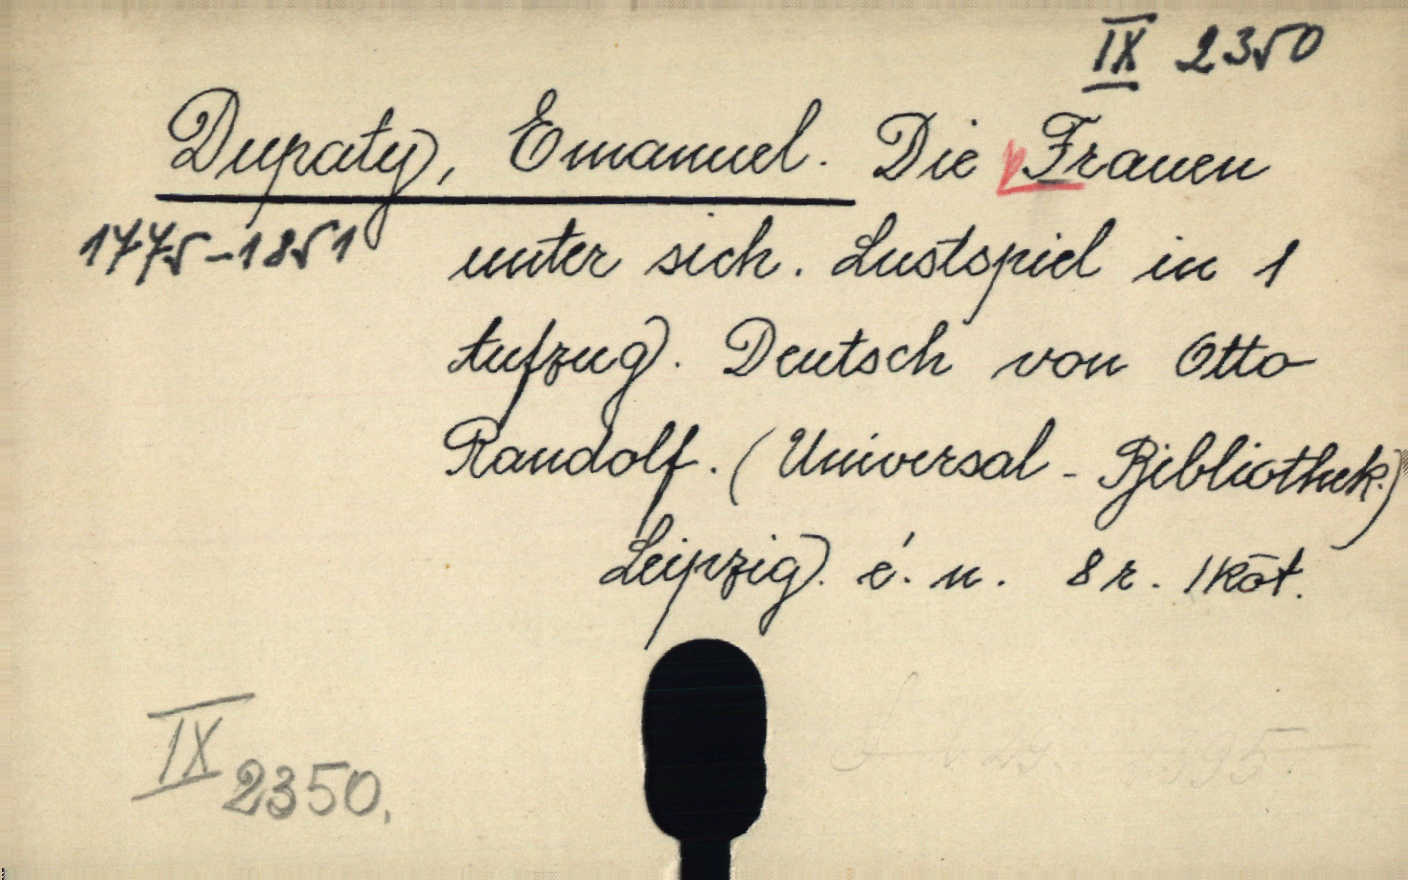 IX 2350
Dupaty, Emanuel. Die Frauen
1775-1851
unter sich. Lustspiel in 1
Aufzug. Deutsch von Otto
Randolf. (Universal-Bibliothek.)
Leipzig. é. n. 8 r. 1 köt.
IX 2350.